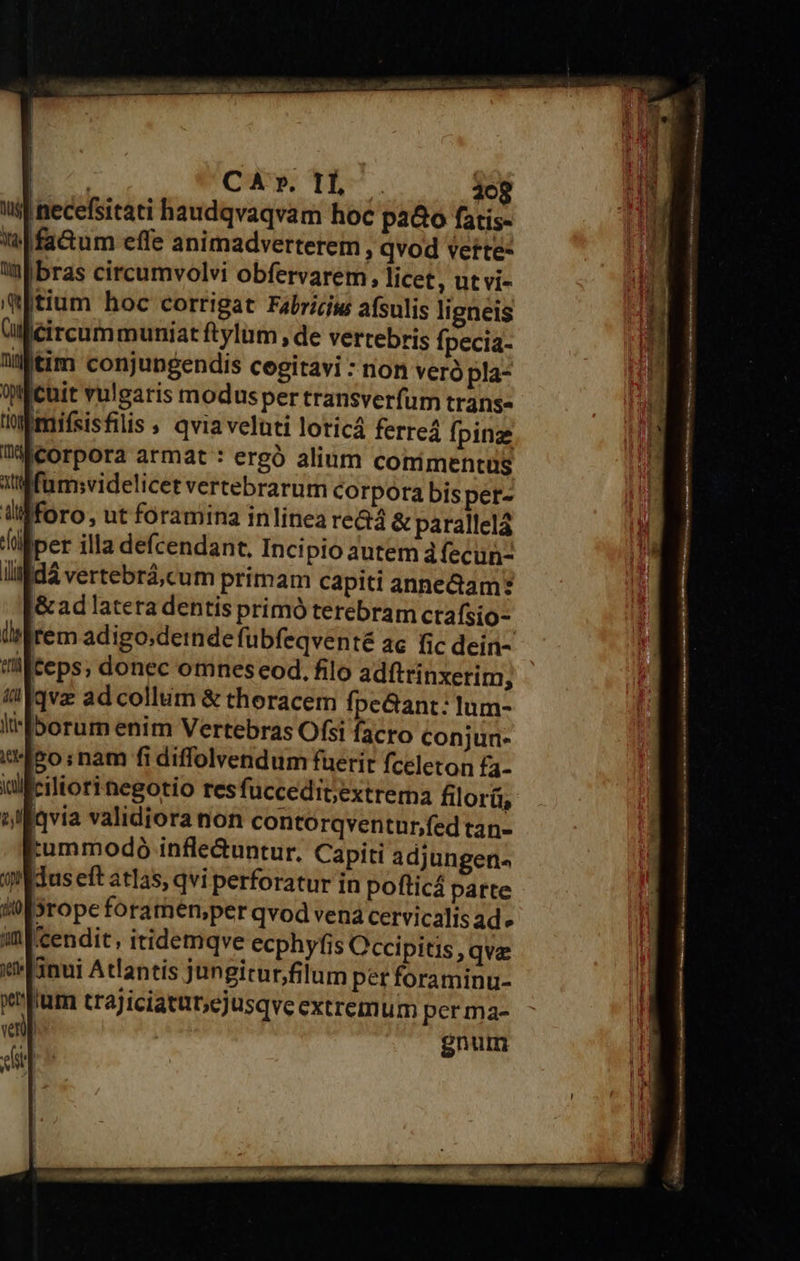 CAP. II. 208
necefsitati haudqvaqvam hoc pacto fatis-
factum effe animadverterem, qvod verte-
bras circumvolvi obfervarem, licet, ut vi-
tium hoc corrigat Fabricius afsulis ligneis
circummuniat ftylum, de vertebris fpecia-
tim conjungendis cogitavi : non verò pla-
cuit vulgaris modus per transverfum trans-
mifsis filis, qvia veluti loricâ ferreâ fpinæ
corpora armat : ergò alium commentus
fum; videlicet vertebrarum corpora bis per-
foro, ut foramina in linea rectâ & parallelâ
per illa defcendant. Incipio autem à fecun-
dâ vertebrâ, cum primam capiti annectam:
& ad latera dentis primò terebram crafsio-
rem adigo, deinde fubfeqventé ac fic dein-
ceps, donec omnes eod. filo adftrinxerim,
qvæ ad collum & thoracem fpectant: lum-
borum enim Vertebras Ofsi facro conjun-
go; nam fi diffolvendum fuerit fceleton fa-
ciliori negotio res fuccedit, extrema filorũ,
qvia validiora non contorqventur, fed tan-
tummodò inflectuntur. Capiti adjungen-
dus eft atlas, qvi perforatur in pofticâ parte
prope foramen, per qvod vena cervicalis ad-
fcendit, itidemqve ecphyfis Occipitis, qvæ
finui Atlantis jungitur, filum per foraminu-
lum trajiciatur, ejusqve extremum per ma-
gnum